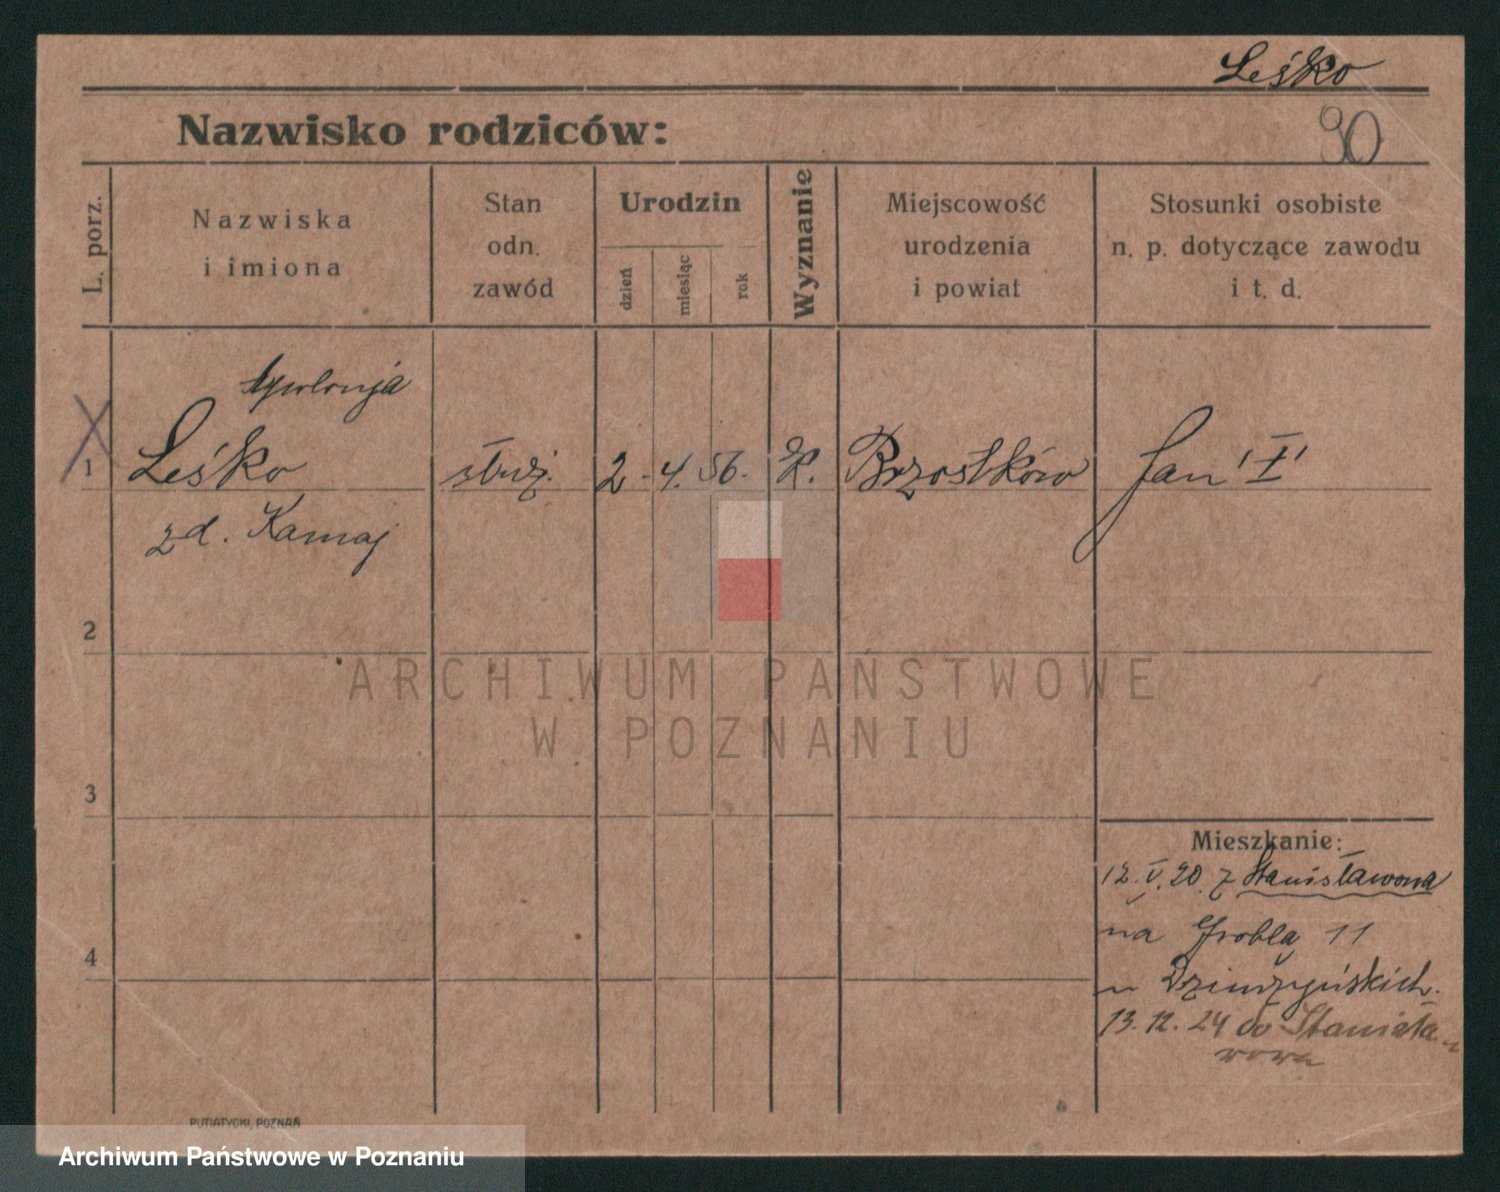 Leśko
Nazwisko rodziców:
90
L. porz.
Nazwiska
i imiona
Stan
odn.
zawód
Urodzin
dzień
miesiąc
rok
Wyznanie
Miejscowość
urodzenia
i powiat
Stosunki osobiste
n. p. dotyczące zawodu
i t. d.
Apolonja
X
1 Leśko służ. 2. 4. 56. K. Brzostków Jan
zd. Kamaj
2
3
4
ARCHIWUM PAŃSTWOWE
W POZNANIU
Mieszkanie:
12. V. 20 z Stanisławowa
na Groblą 11
u
13. 12. 24 do Stanisła-
wowa
PUTIATYCKI, POZNAŃ
Archiwum Państwowe w Poznaniu